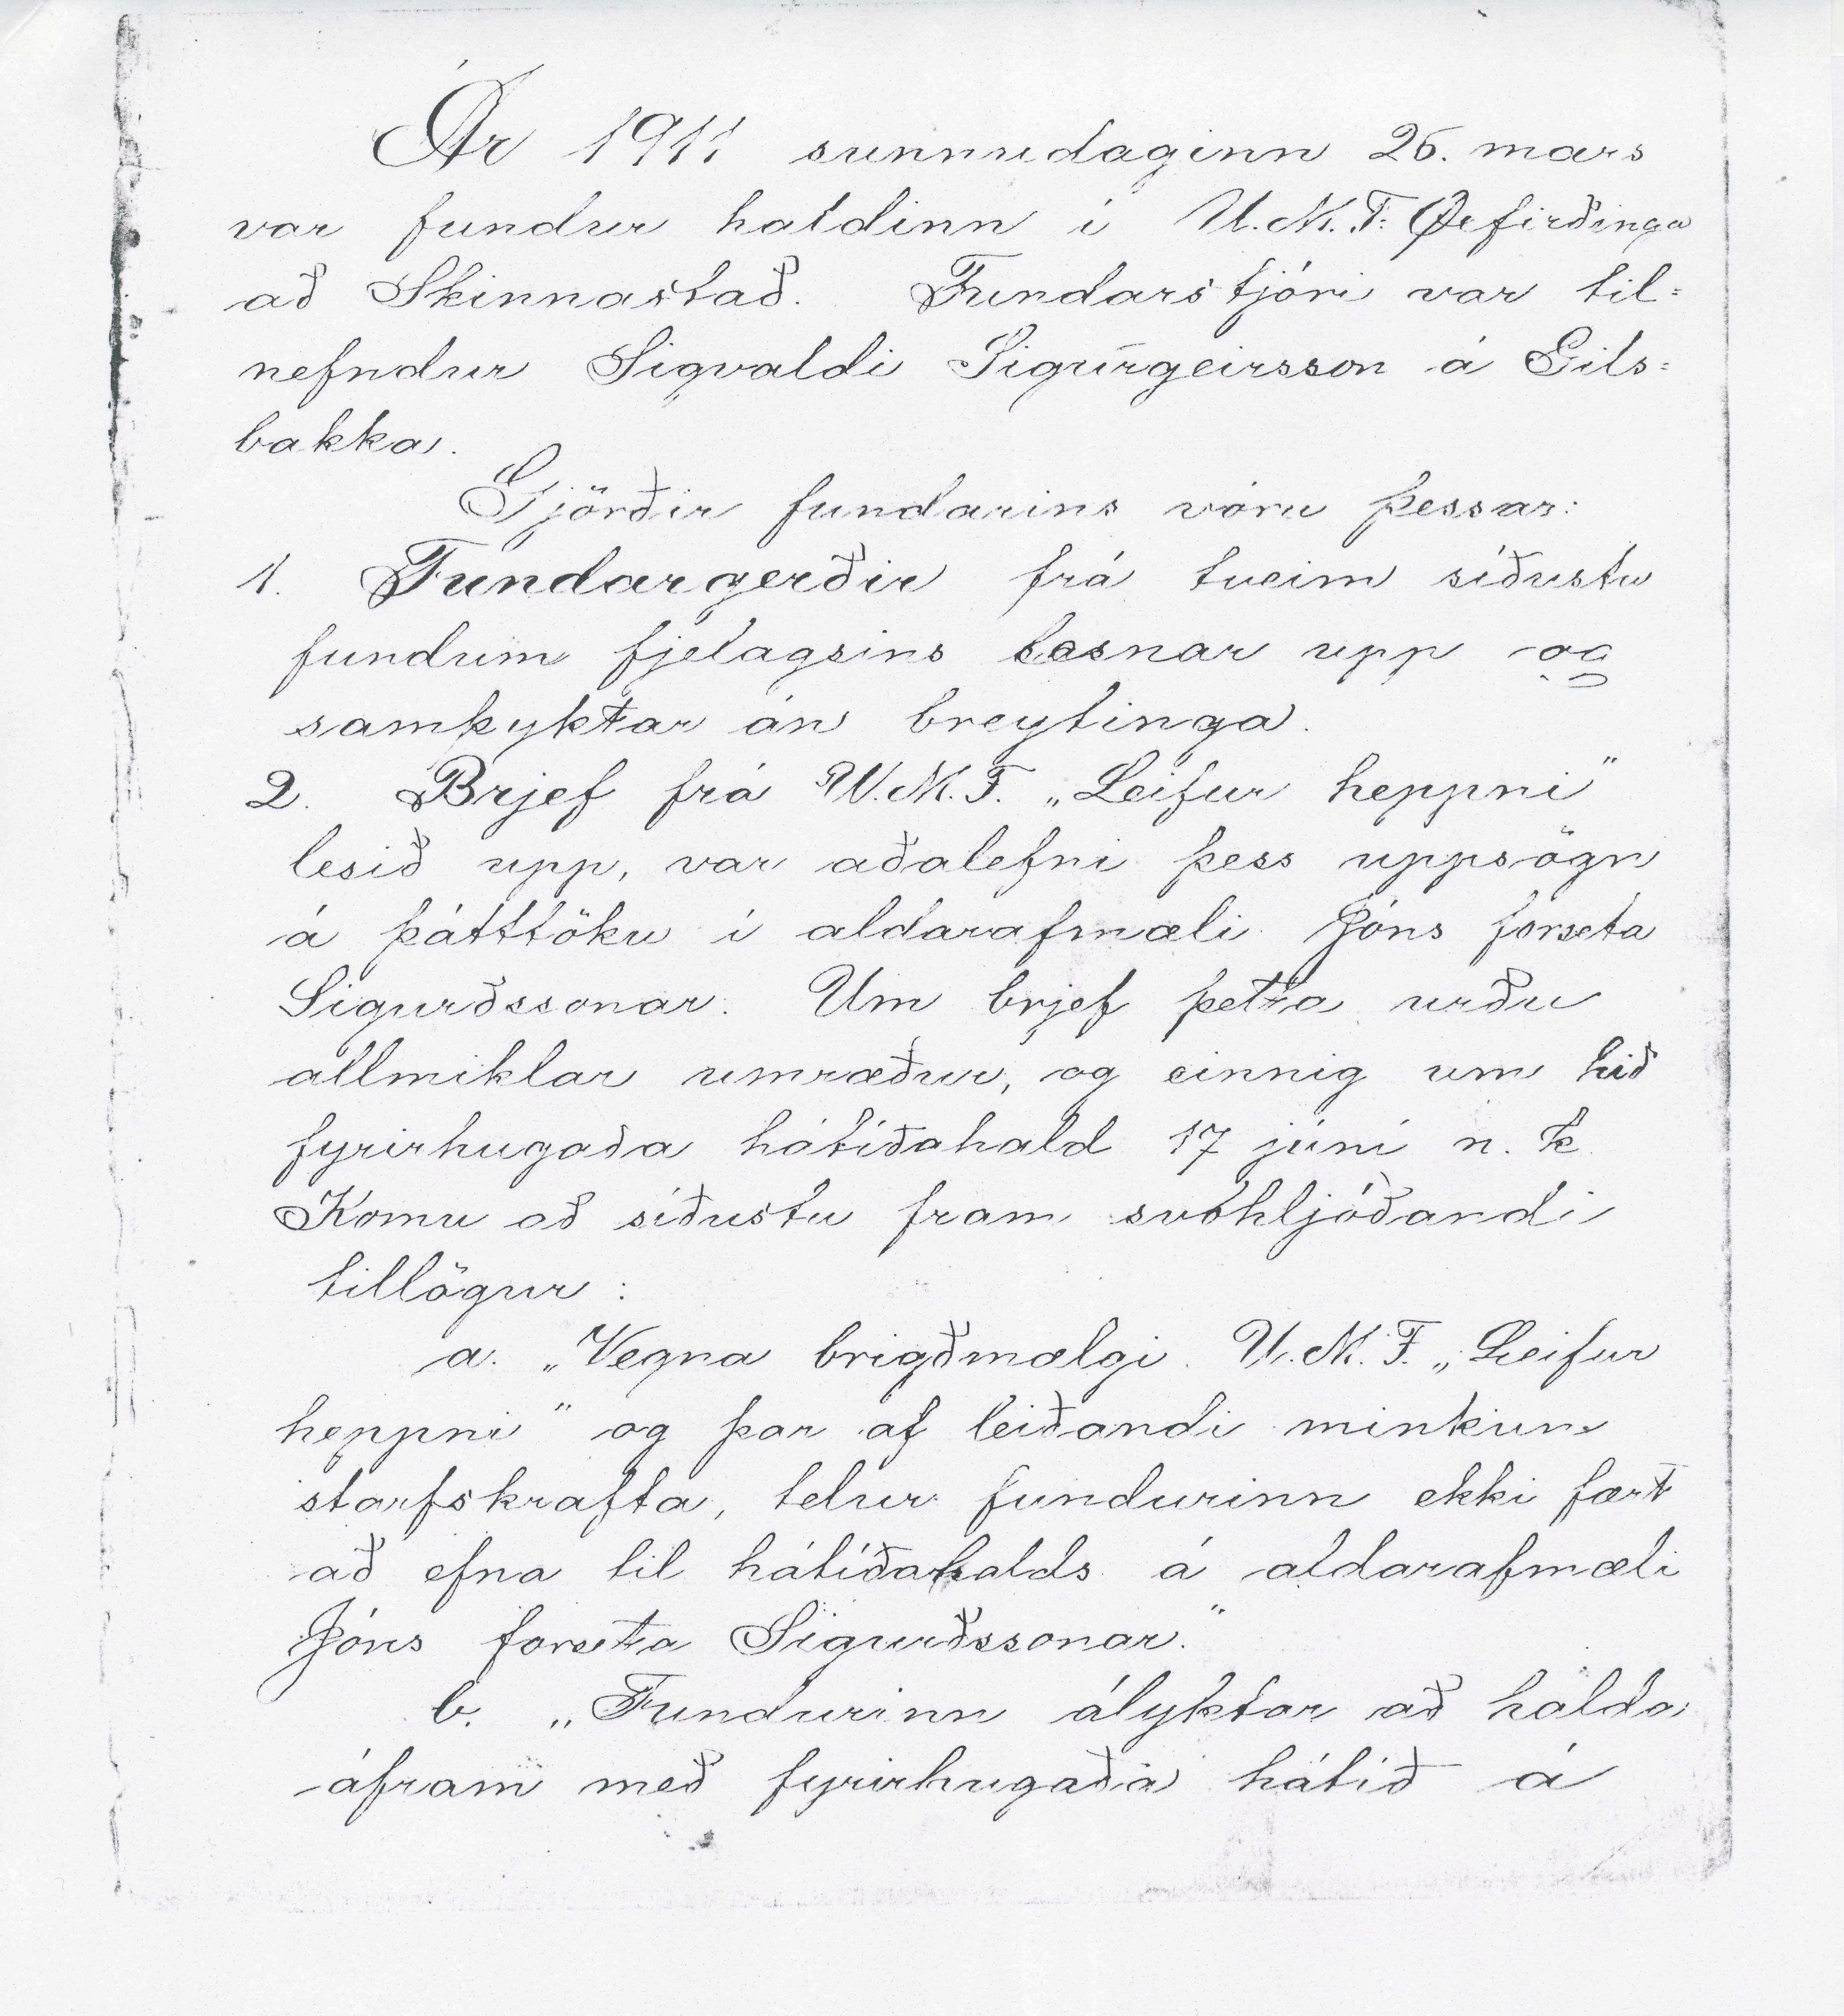 Ár 1911 sunnudaginn 26. mars
var fundur haldinn í U.M.F. Øxfirðinga
að Skinnastað. Fundarstjóri var til=
nefndur Sigvaldi Sigurgeirsson á Gils=
bakka.
Gjörðir fundarins vóru þessar:
1. Fundargerðir frá tveim síðustu
fundum fjelagsins lesnar upp og
samþyktar án breytinga.
2. Brjef frá U.M.F. „Leifur heppni"
lesið upp, var aðalefni þess uppsögn
á þátttöku í aldarafmæli Jóns forseta
Sigurðssonar. Um brjef þetta urðu
allmiklar umræður, og einnig um hið
fyrirhugaða hátíðahald 17 júní n.k.
Komu að síðustu fram svohljóðandi
tillögur:
a. „Vegna brigðmælgi U.M.F. „Leifur
heppni" og þar af leiðandi minkun
starfskrafta, telur fundurinn ekki fært
að efna til hátíðahalds á aldarafmæli
Jóns forseta Sigurðssonar."
b. „Fundurinn ályktar að halda
áfram með fyrirhugaða hátíð á